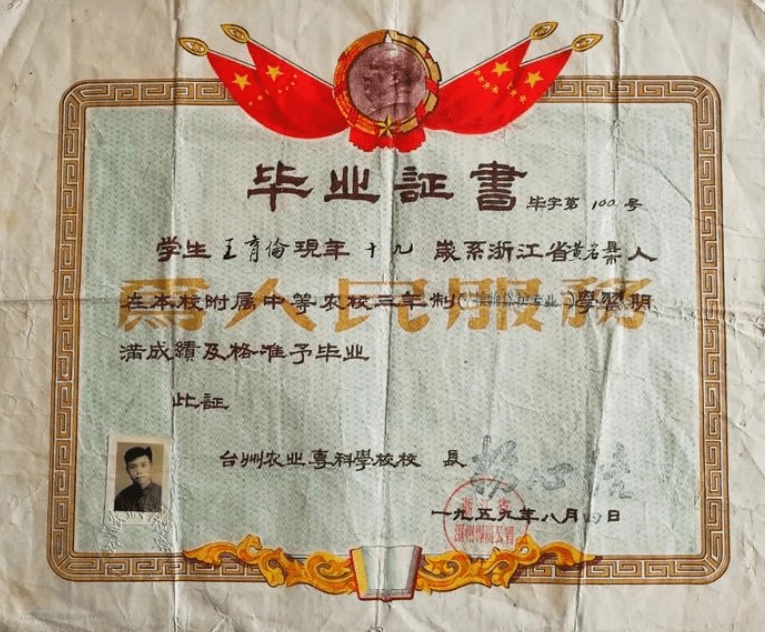 毕业証書
毕字第 100 号
学生王育倫現年十九歲系浙江省黄岩縣人
為人民服務
在本校附属中等农校三年制(植物保护专业)學習期
满成績及格准予毕业
此証
台州农业專科學校校長
一九五九年八月四日